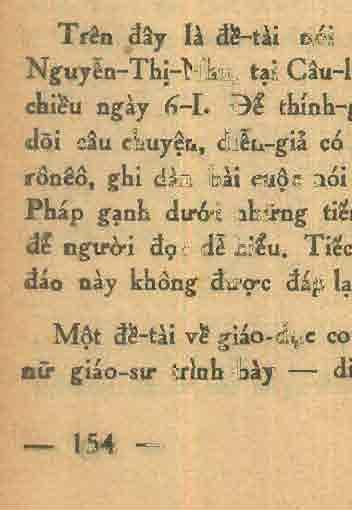 Trên đây là đề-tài nói
Nguyễn-Thị- tại Câu-l
chiều ngày 6-I. Để thính-g
dõi câu chuyện, diễn-giả có
rônêô, ghi dàn bài cuộc nói
Pháp gạnh dưới những tiến
để người đọc dễ hiểu. Tiếc
đáo này không được đáp lạ
Một đề-tài về giáo-dục co
nữ giáo-sư trình bày — di
— 154 —